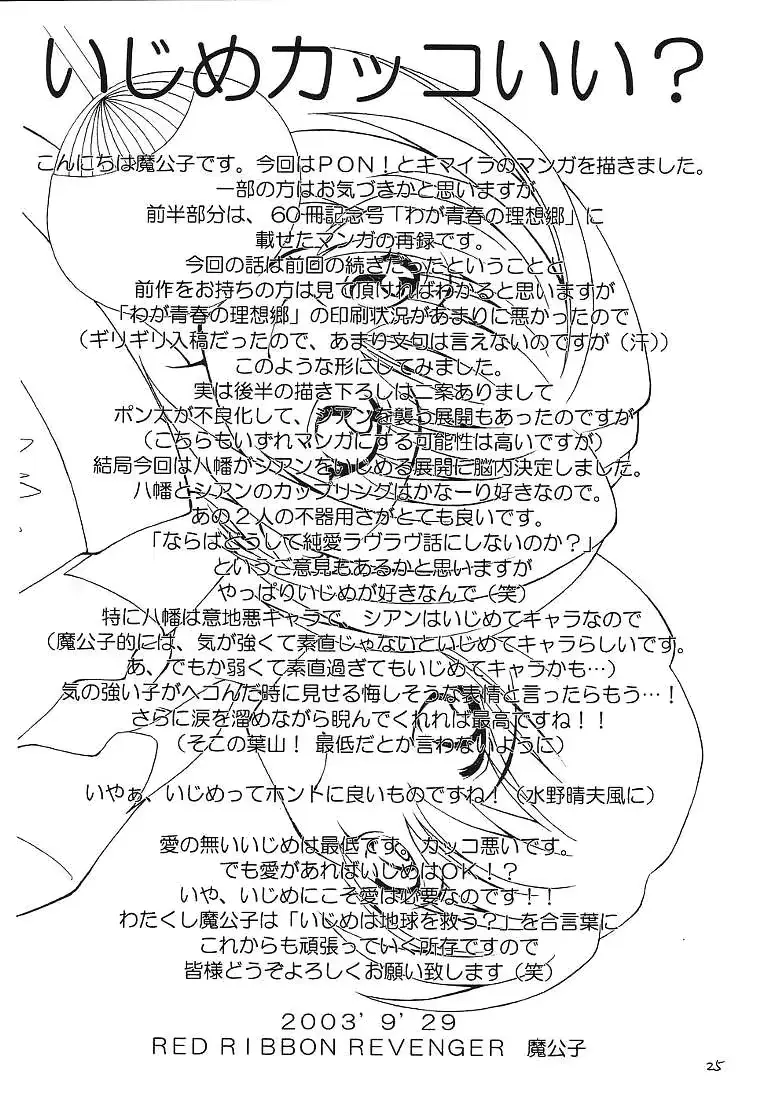 いじめカッコいい？
こんにちは魔公子です。今回はＰＯＮ！とキマイラのマンガを描きました。
一部の方はお気づきかと思いますが
前半部分は、６０冊記念号「わが青春の理想郷」に
載せたマンガの再録です。
今回の話は前回の続きだったということと
前作をお持ちの方は見て頂ければわかると思いますが
「わが青春の理想郷」の印刷状況があまりに悪かったので
（ギリギリ入稿だったので、あまり文句は言えないのですが（汗））
このような形にしてみました。
実は後半の描き下ろしは二案ありまして
ポン太が不良化して、シアンを襲う展開もあったのですが
（こちらもいずれマンガにする可能性は高いですが）
結局今回は八幡がシアンをいじめる展開に脳内決定しました。
八幡とシアンのカップリングはかなーり好きなので。
あの２人の不器用さがとても良いです。
「ならばどうして純愛ラヴラヴ話にしないのか？」
というご意見もあるかと思いますが
やっぱりいじめが好きなんで（笑）
特に八幡は意地悪キャラで、シアンはいじめてキャラなので
（魔公子的には、気が強くて素直じゃないといじめてキャラらしいです。
あ、でもか弱くて素直過ぎてもいじめてキャラかも…）
気の強い子がヘコんだ時に見せる悔しそうな表情と言ったらもう…！
さらに涙を溜めながら睨んでくれれば最高ですね！！
（そこの葉山！ 最低だとか言わないように）
いやぁ、いじめってホントに良いものですね！（水野晴夫風に）
愛の無いいじめは最低です。カッコ悪いです。
でも愛があればいじめはＯＫ！？
いや、いじめにこそ愛は必要なのです！！
わたくし魔公子は「いじめは地球を救う？」を合言葉に
これからも頑張っていく所存ですので
皆様どうぞよろしくお願い致します（笑）
２００３’９’２９
ＲＥＤ ＲＩＢＢＯＮ ＲＥＶＥＮＧＥＲ　魔公子
25